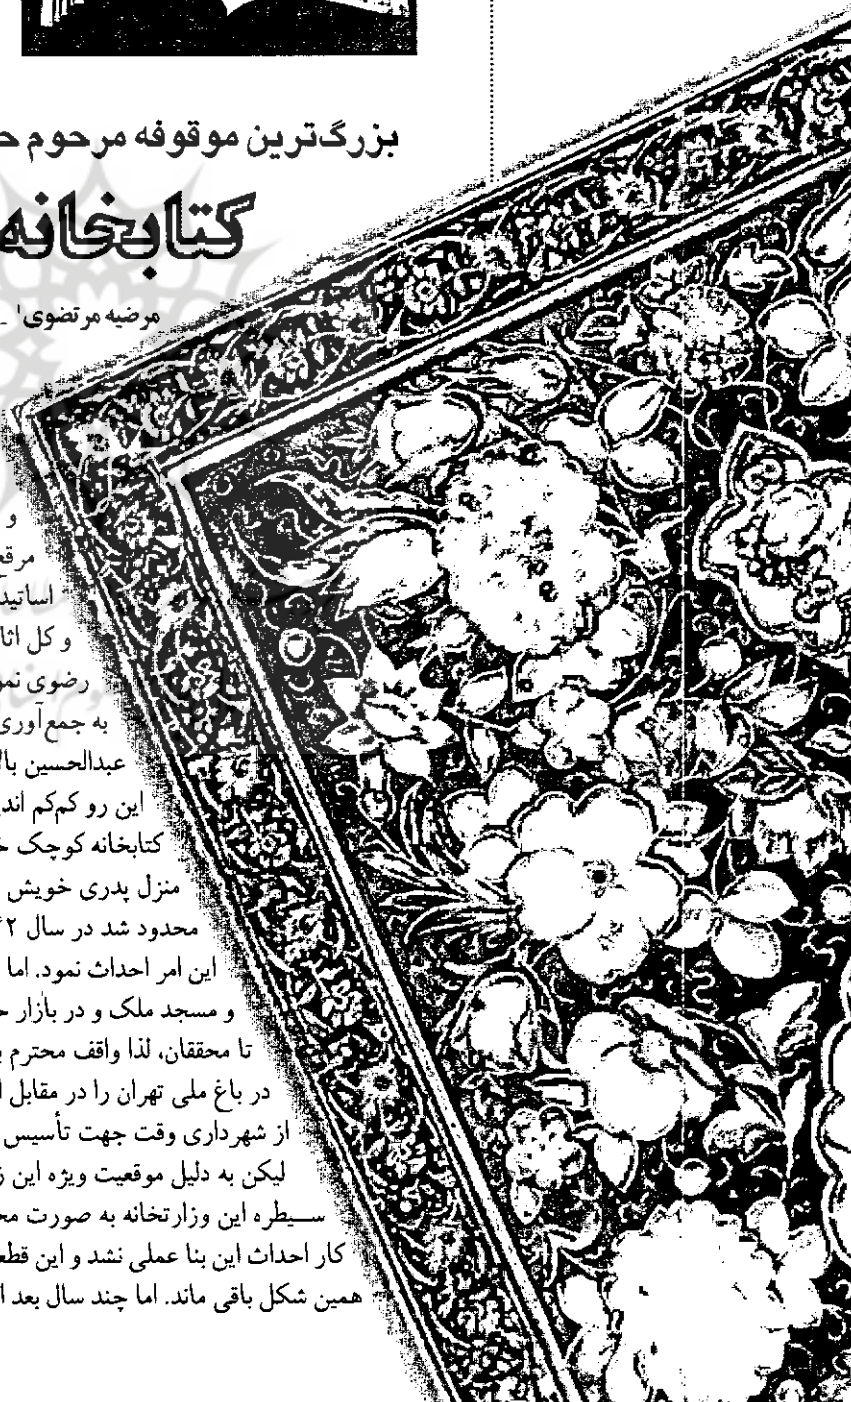 بزرگ‌ترین موقوفه مرحوم
کتابخانه
مرضیه مرتضوی۱ ـ
و
مرقع
اساتید
و کل اثا
رضوی نمو
به جمع‌آوری
عبدالحسین بالا
این رو کم‌کم اند
کتابخانه کوچک خ
منزل پدری خویش
محدود شد در سال
این امر احداث نمود. اما
و مسجد ملک و در بازار
تا محققان، لذا واقف محترم
در باغ ملی تهران را در مقابل
از شهرداری وقت جهت تأسیس
لیکن به دلیل موقعیت ویژه این
سیطره این وزارتخانه به صورت
کار احداث این بنا عملی نشد و این
همین شکل باقی ماند. اما چند سال بعد